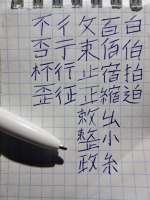 不 彳 攵 百 白
否 亍 束 佰 伯
杯 行 止 宿 拍
歪 征 正 縮 迫
敕 出
整 小
政 糸